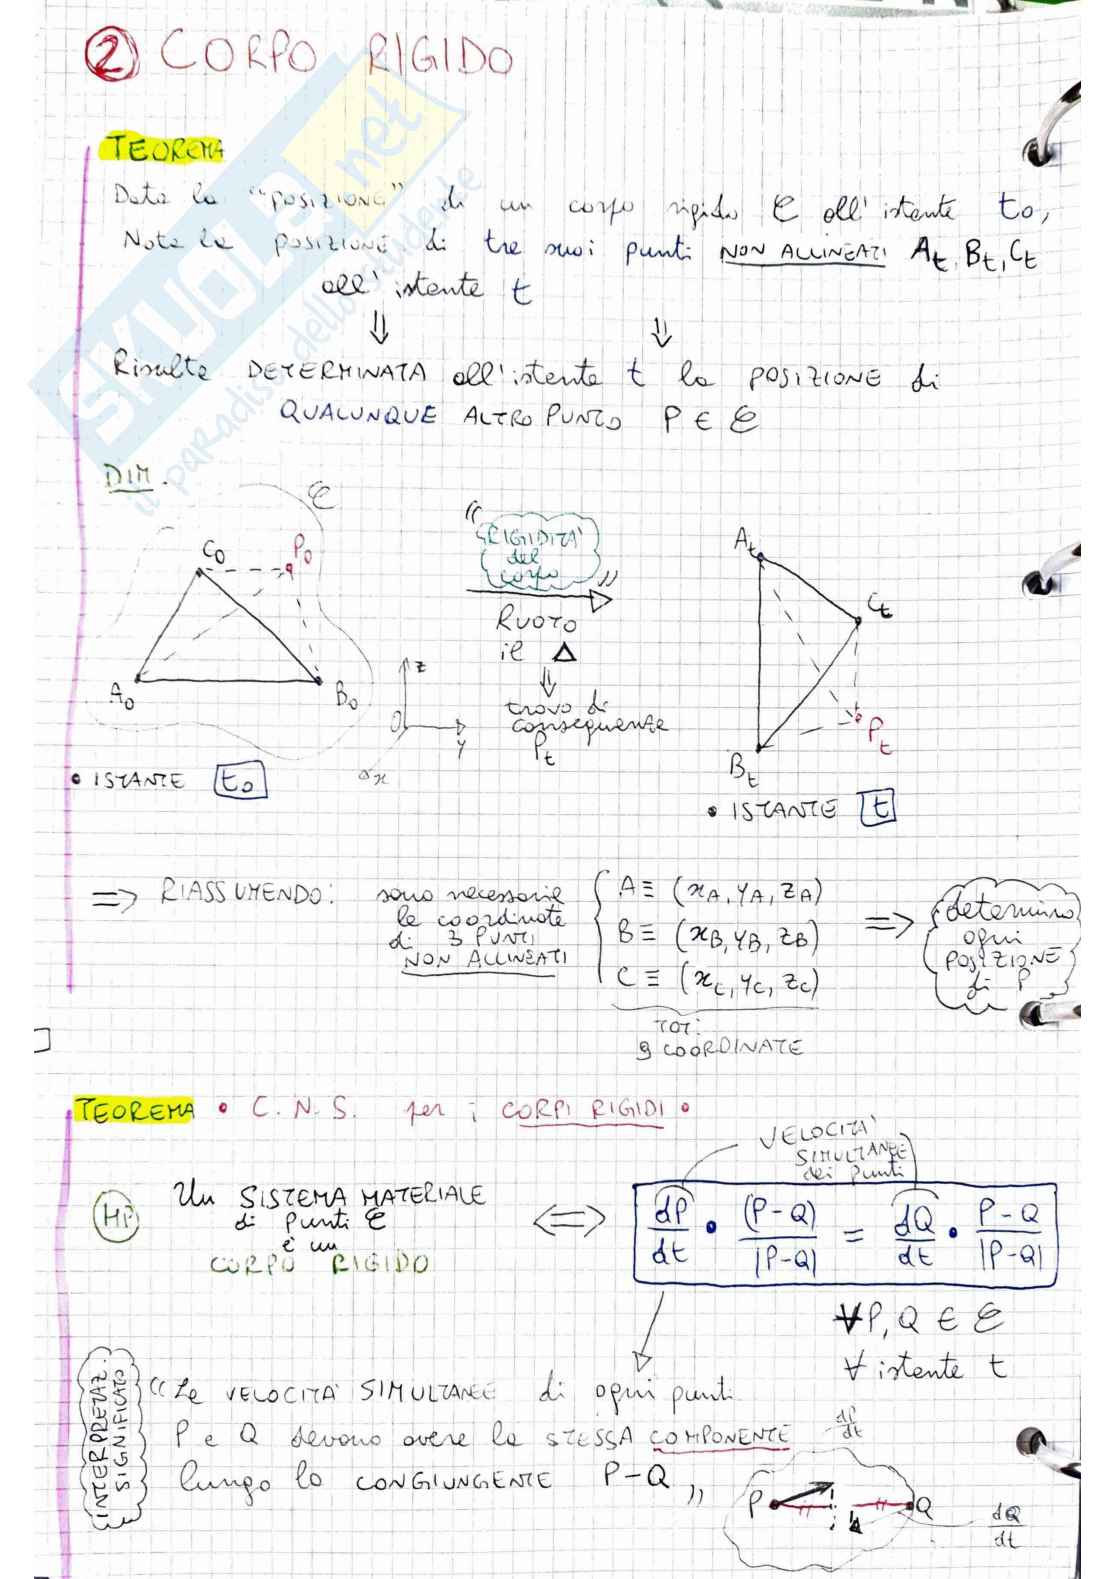 ② CORPO RIGIDO
TEOREMA
Data la "POSIZIONE" di un corpo rigido C all'istante t0,
Nota la POSIZIONE di tre suoi punti NON ALLINEATI At, Bt, Ct
all'istante t
⇓ ⇓
Risulta DETERMINATA all'istante t la POSIZIONE di
QUALUNQUE ALTRO PUNTO P ∈ C
DIM.
C
C0 P0
A0 B0
• ISTANTE t0
z
O y
x
"RIGIDITA'
del
corpo"
RUOTO
il Δ
⇓
trovo di
conseguenza
Pt
At
Ct
Pt
Bt
• ISTANTE t
=> RIASSUMENDO: sono necessarie
le coordinate
di 3 PUNTI
NON ALLINEATI
A ≡ (xA, yA, zA)
B ≡ (xB, yB, zB)
C ≡ (xC, yC, zC)
TOT:
9 COORDINATE
=> determino
ogni
POSIZIONE
di P
TEOREMA • C.N.S. per i CORPI RIGIDI •
VELOCITA'
SIMULTANEE
dei punti
HP Un SISTEMA MATERIALE
di punti C
è un
CORPO RIGIDO
<=> dP/dt • (P-Q)/|P-Q| = dQ/dt • P-Q/|P-Q|
∀P, Q ∈ C
∀ istante t
INTERPRETAZ.
SIGNIFICATO
"Le VELOCITA' SIMULTANEE di ogni punti
P e Q devono avere la STESSA COMPONENTE
lungo la CONGIUNGENTE P-Q"
dP/dt
P Q
dQ/dt
SKUOLA.net
il paradiso dello studente